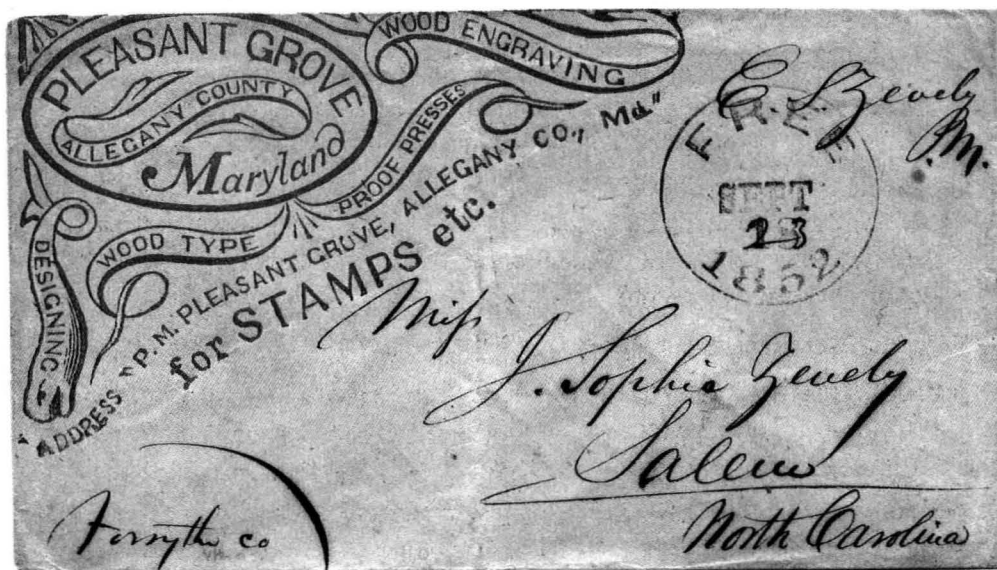 PLEASANT GROVE
ALLEGANY COUNTY
Maryland
WOOD ENGRAVING
PROOF PRESSES
WOOD TYPE
DESIGNING
"ADDRESS "P. M. PLEASANT GROVE, ALLEGANY CO., Md."
for STAMPS etc.
E. S. Zevely
P.M.
FREE
SEPT
1852
Miss
J. Sophia Zevely
Salem
North Carolina
Forsythe co